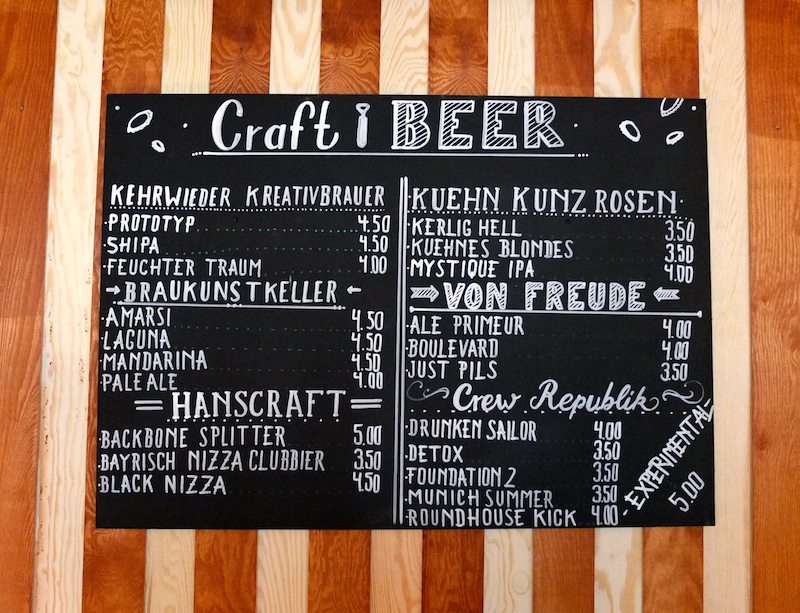 Craft BEER
KEHRWIEDER KREATIVBRAUER
PROTOTYP 4.50
SHIPA 4.50
FEUCHTER TRAUM 4.00
BRAUKUNSTKELLER
AMARSI 4.50
LAGUNA 4.50
MANDARINA 4.50
PALE ALE 4.00
HANSCRAFT
BACKBONE SPLITTER 5.00
BAYRISCH NIZZA CLUBBIER 3.50
BLACK NIZZA 4.50
KUEHN KUNZ ROSEN
KERLIG HELL 3.50
KUEHNES BLONDES 3.50
MYSTIQUE IPA 4.00
VON FREUDE
ALE PRIMEUR 4.00
BOULEVARD 4.00
JUST PILS 3.50
Crew Republik
DRUNKEN SAILOR 4.00
DETOX 3.50
FOUNDATION 2 3.50
MUNICH SUMMER 3.50
ROUNDHOUSE KICK 4.00
-EXPERIMENTAL-
5.00